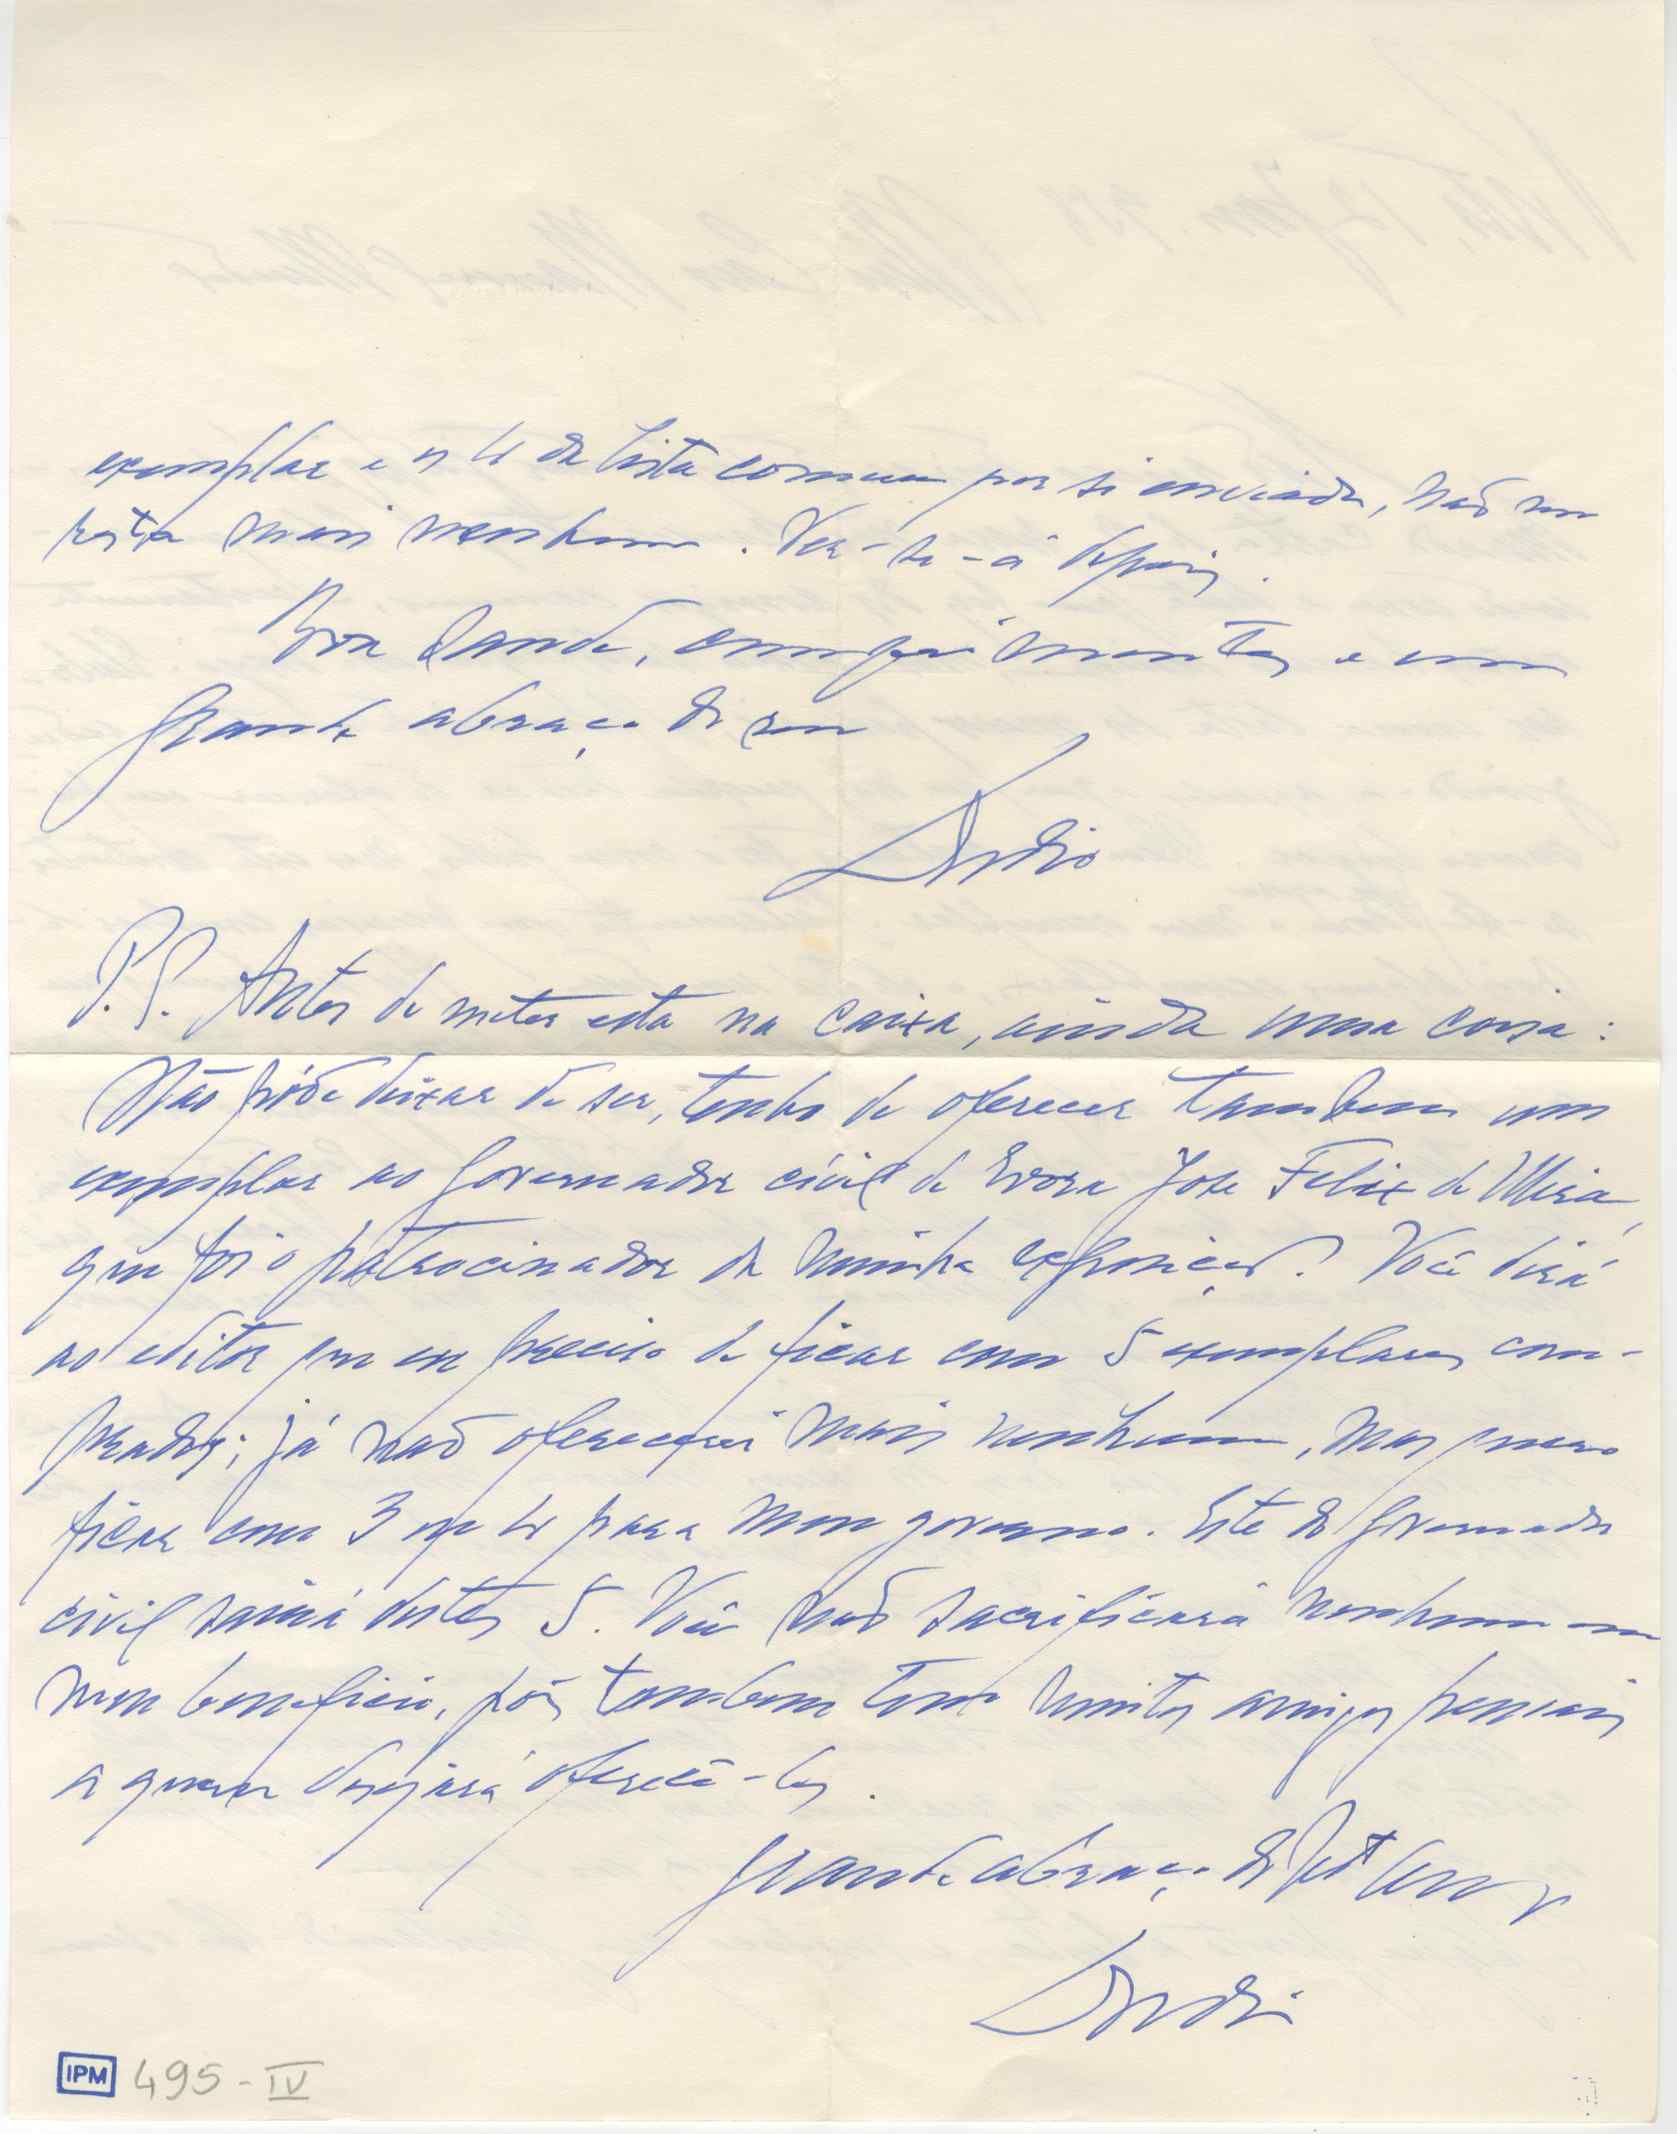 exemplar e os 4 da lista comum por si enviada, não me
resta mais nenhum. Ver-se-á depois.
Boa saude, cumprimentos e um
grande abraço do seu
P.S. Antes de meter esta na caixa, ainda uma coisa:
Não póde deixar de ser, tenho de oferecer tambem um
exemplar ao Governador civil de Evora Jose Felix de Mira,
que foi o patrocinador da minha exposição! Você dirá
ao editor que eu preciso de ficar com 5 exemplares com-
prados; já não oferecerei mais nenhum, mas quero
ficar com 3 ou 4 para meu governo. Este do Governador
civil sairá destes 5. Você não sacrificará nenhum em
meu beneficio, pois tambem tem muitos amigos
a quem desejará oferecê-los.
Grande abraço do
IPM 495-IV